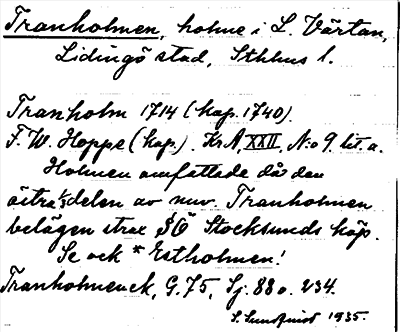 Tranholmen, holme i L. Värtan,
Lidingö stad, Sthlms l.
Tranholm 1714 (kop. 1740).
F. W. Hoppe (kop.). Kr A, XXII, N:o 9 lit. a.
Holmen omfattade då den
östra 1/3 delen av nuv. Tranholmen
belägen strax SÖ Stocksunds köp.
Se ock * Estholmen!
Tranholmen ek, G. 75, Sj. 88 o. 234.
S. Sundquist 1935.